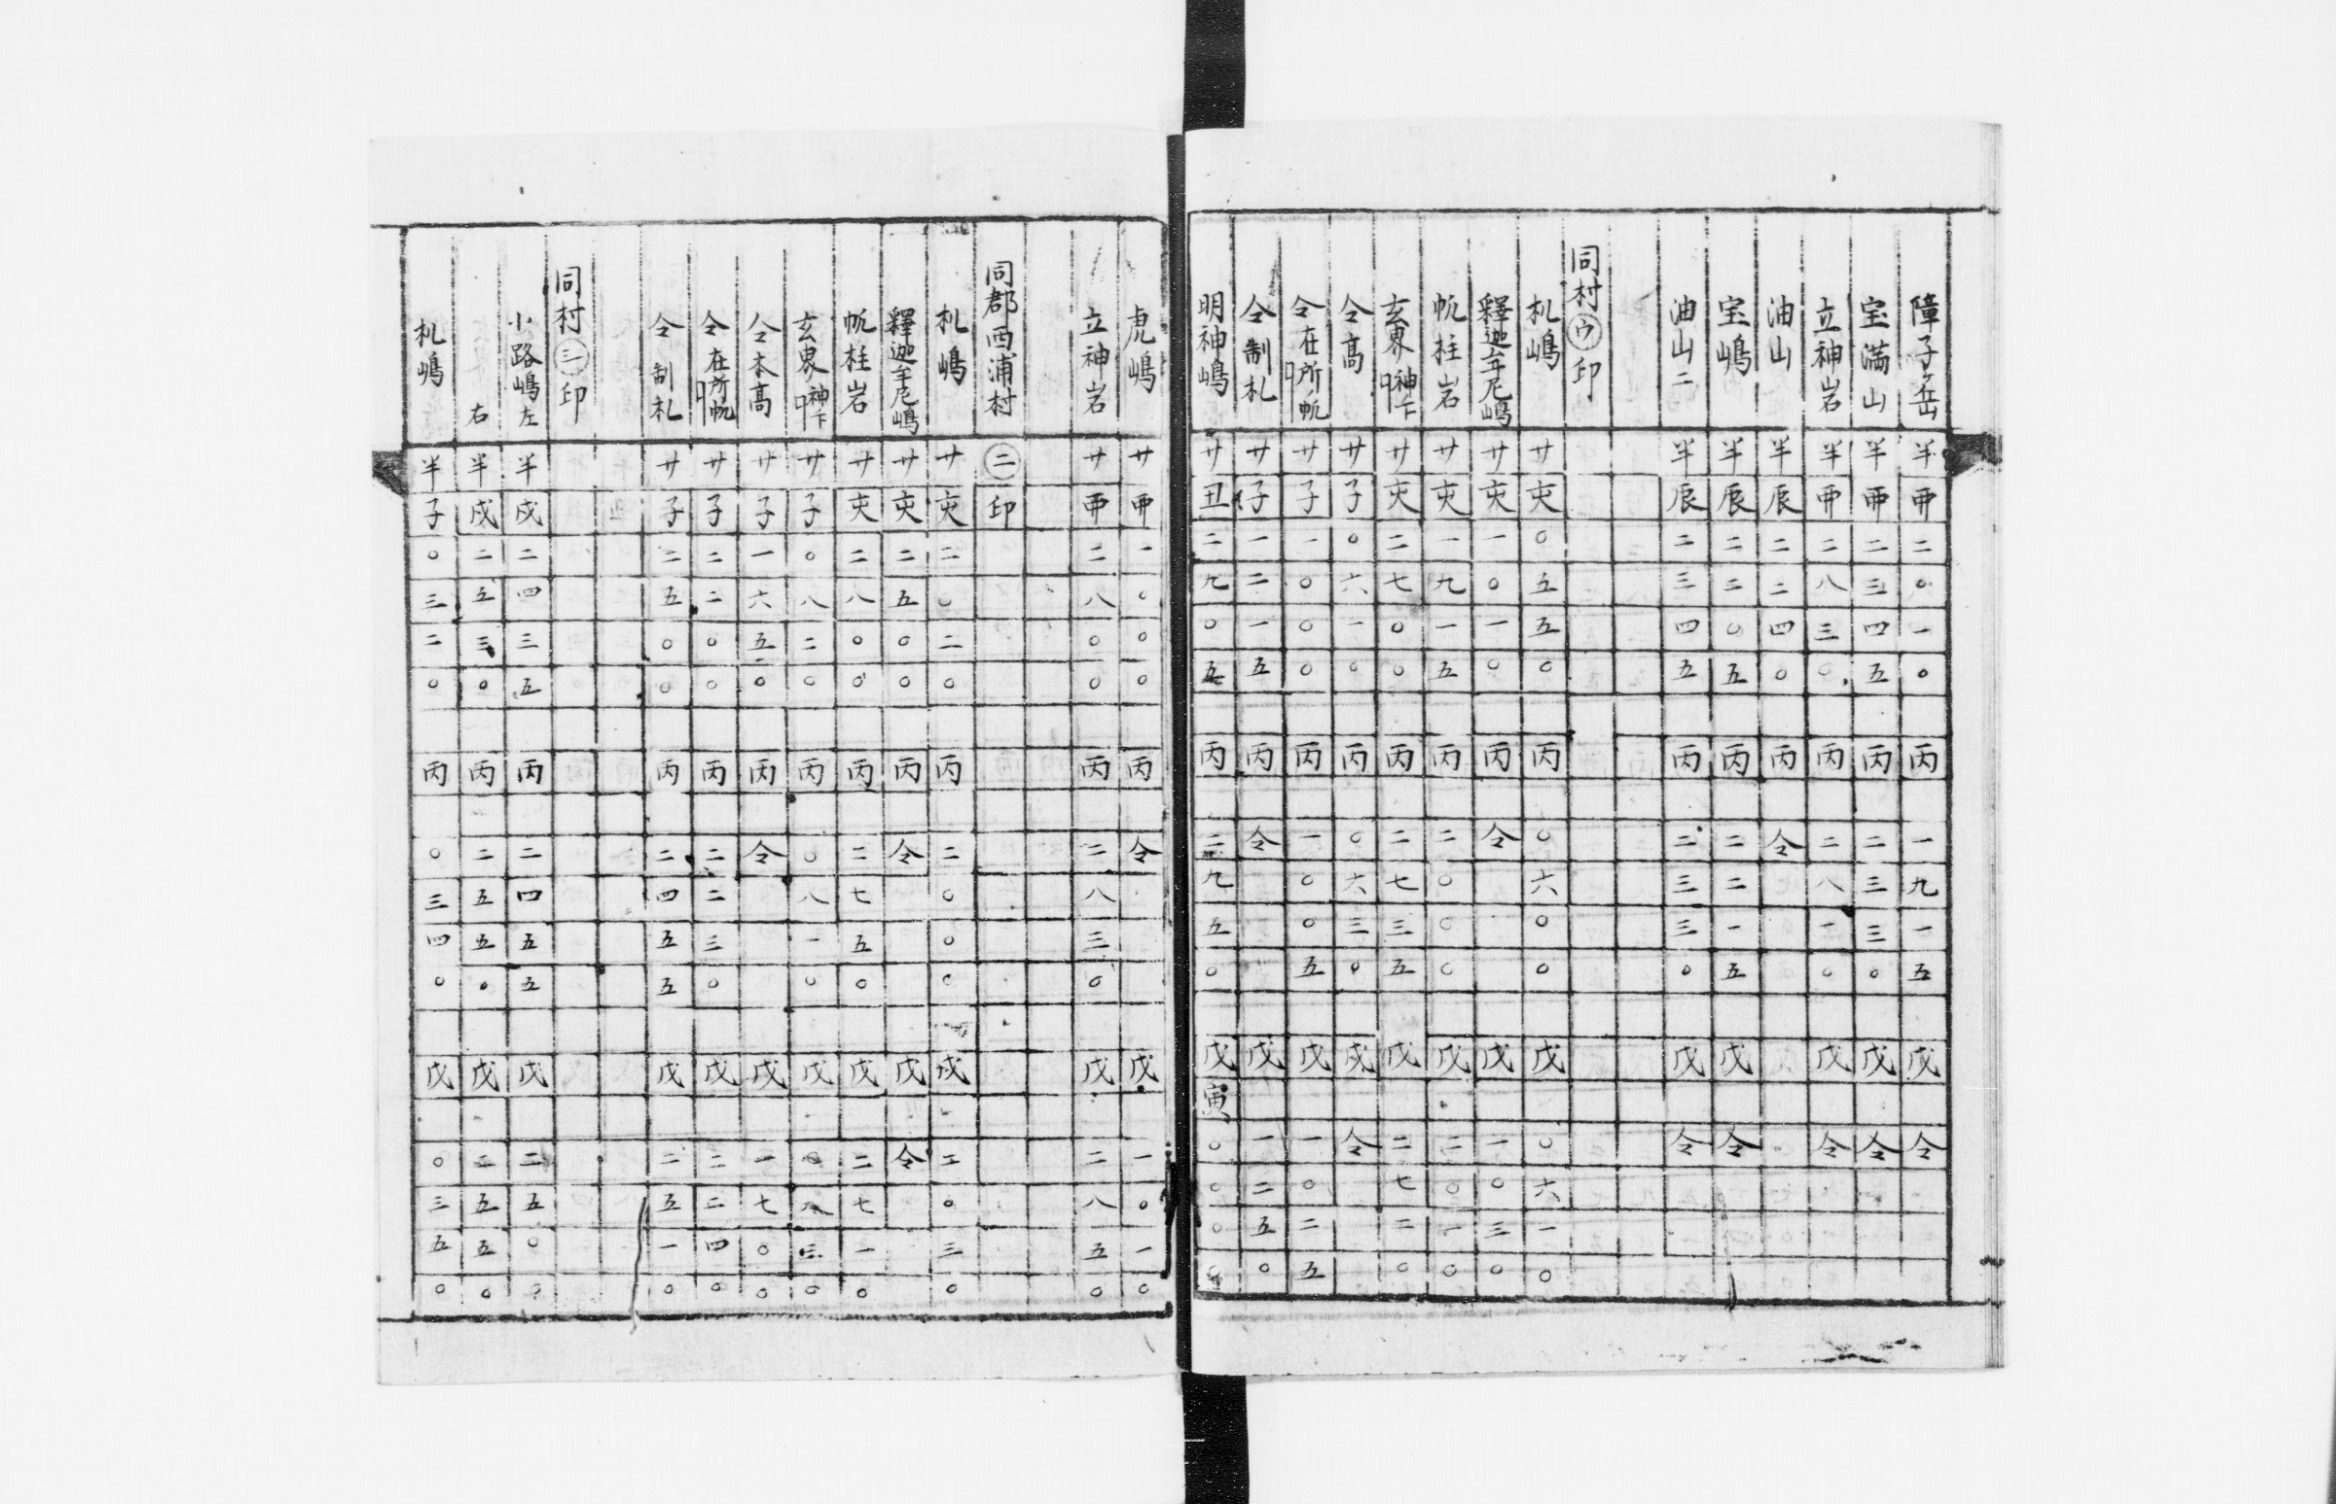 障子ヶ岳 半 丣 二 〇 一 〇 丙 一 九 一 五 戊 仝
宝満山 半 丣 二 三 四 五 丙 二 三 三 〇 戊 仝
立神岩 半 丣 二 八 三 〇 丙 二 八 一 〇 戊 仝
油山 半 辰 二 二 四 〇 丙 仝
宝嶋 半 辰 二 二 〇 五 丙 二 二 一 五 戊 仝
油山二 半 辰 二 三 四 五 丙 二 三 三 〇 戊 仝
同村㋒印
机嶋 廿 亥 〇 五 五 〇 丙 〇 六 〇 〇 戊 〇 六 一 〇
釋迦牟尼嶋 廿 亥 一 〇 一 〇 丙 仝 戊 一 〇 三 〇
帆柱岩 廿 亥 一 九 一 五 丙 二 〇 〇 〇 戊 二 〇 一 〇
玄界口神下 廿 亥 二 七 〇 〇 丙 二 七 三 五 戊 二 七 二 〇
仝高 廿 子 〇 六 一 〇 丙 〇 六 三 〇 戊 仝
仝在所口ノ帆 廿 子 一 〇 〇 〇 丙 一 〇 〇 五 戊 一 〇 二 五
仝制札 廿 子 一 二 一 五 丙 仝 戊 一 二 五 〇
明神嶋 廿 丑 二 九 〇 五 丙 二 九 五 〇 戊 寅 〇 〇 〇 〇
虎嶋 廿 丣 一 〇 〇 〇 丙 仝 戊 一 〇 一 〇
立神岩 廿 丣 二 八 〇 〇 丙 二 八 三 〇 戊 二 八 五 〇
同郡西浦村 ㊁印
机嶋 廿 亥 二 〇 二 〇 丙 二 〇 〇 〇 戊 二 〇 三 〇
釋迦牟尼嶋 廿 亥 二 五 〇 〇 丙 仝 戊 仝
帆柱岩 廿 亥 二 八 〇 〇 丙 二 七 五 〇 戊 二 七 一 〇
玄界口神下 廿 子 〇 八 二 〇 丙 〇 八 一 〇 戊 〇 八 三 〇
仝本高 廿 子 一 六 五 〇 丙 仝 戊 一 七 〇 〇
仝在所口帆 廿 子 二 二 〇 〇 丙 二 二 三 〇 戊 二 二 四 〇
仝制札 廿 子 二 五 〇 〇 丙 二 四 五 五 戊 二 五 一 〇
同村㊂印
小路嶋左 半 戌 二 四 三 五 丙 二 四 五 五 戊 二 五 〇 〇
右 半 戌 二 五 三 〇 丙 二 五 五 〇 戊 二 五 五 〇
机嶋 半 子 〇 三 二 〇 丙 〇 三 四 〇 戊 〇 三 五 〇